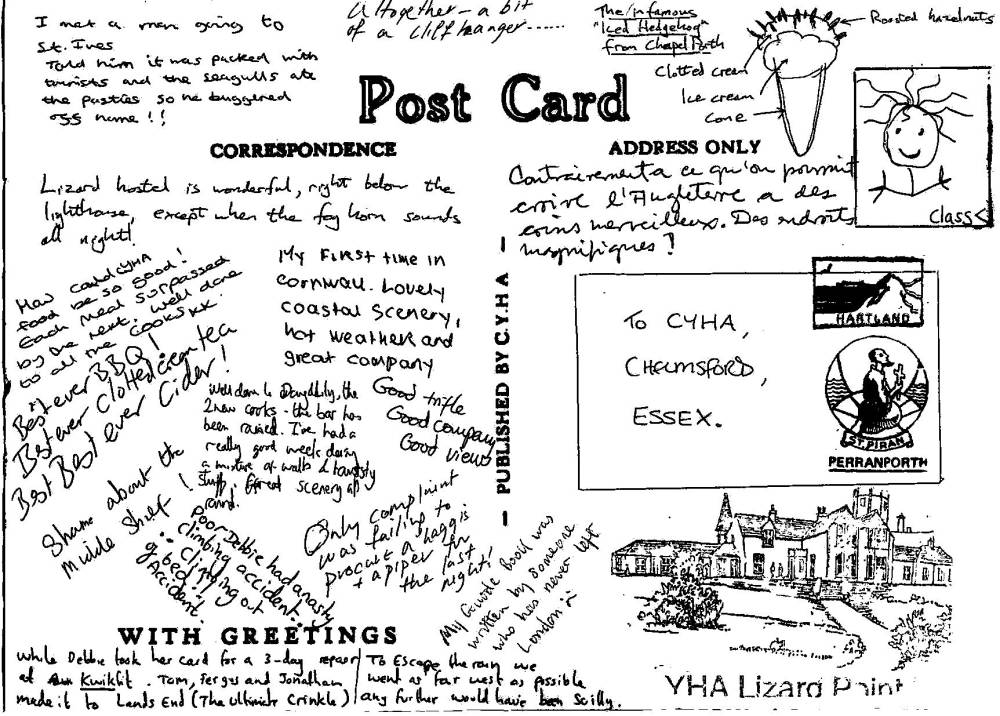 I met a man going to
St. Ives
Told him it was packed with
tourists and the seagulls ate
the pasties so he buggered
off home!!
Altogether - a bit
of a cliff hanger......
The infamous
"Iced Hedgehog"
from Chapel Porth
Roasted hazelnuts
Clotted cream
Ice cream
Cone
Class <
Post Card
CORRESPONDENCE
ADDRESS ONLY
Lizard hostel is wonderful, right below the
lighthouse, except when the fog horn sounds
all night!
Contrairement a ce qu'on pourrait
croire l'Angleterre a des
coins merveilleux. Des endroits
magnifiques!
How could CYHA
food be so good!
Each meal surpassed
by the next. Well done
to all the cooks xx
My First time in
cornwall. Lovely
coastal scenery,
hot weather and
great company
Best ever BBQ!
Best ever clotted cream tea
Best Best ever Cider!
Well done to the
2 new cooks - the bar has
been raised. I've had a
really good week doing
a mixture of walks & touristy
stuff. Great scenery all
round.
Good trifle
Good company
Good views
Shame about the
Middle Shelf!
Poor Debbie had a nasty
climbing accident..
:- Climbing out
of bed
Accident.
Only complaint
was failing to
procure a haggis
+ a piper for
the last
night!
My Guide Book was
written by someone
who has never left
London
PUBLISHED BY C.Y.H A
To CYHA,
CHELMSFORD,
ESSEX.
HARTLAND
ST. PIRAN
PERRANPORTH
WITH GREETINGS
While Debbie took her card for a 3-day repair
at Kwikfit. Tom, Fergus and Jonathan
made it to Lands End (The Ultimate Crinkle)
To Escape the rain we
went as far west as possible
any further would have been Scilly.
YHA Lizard Point